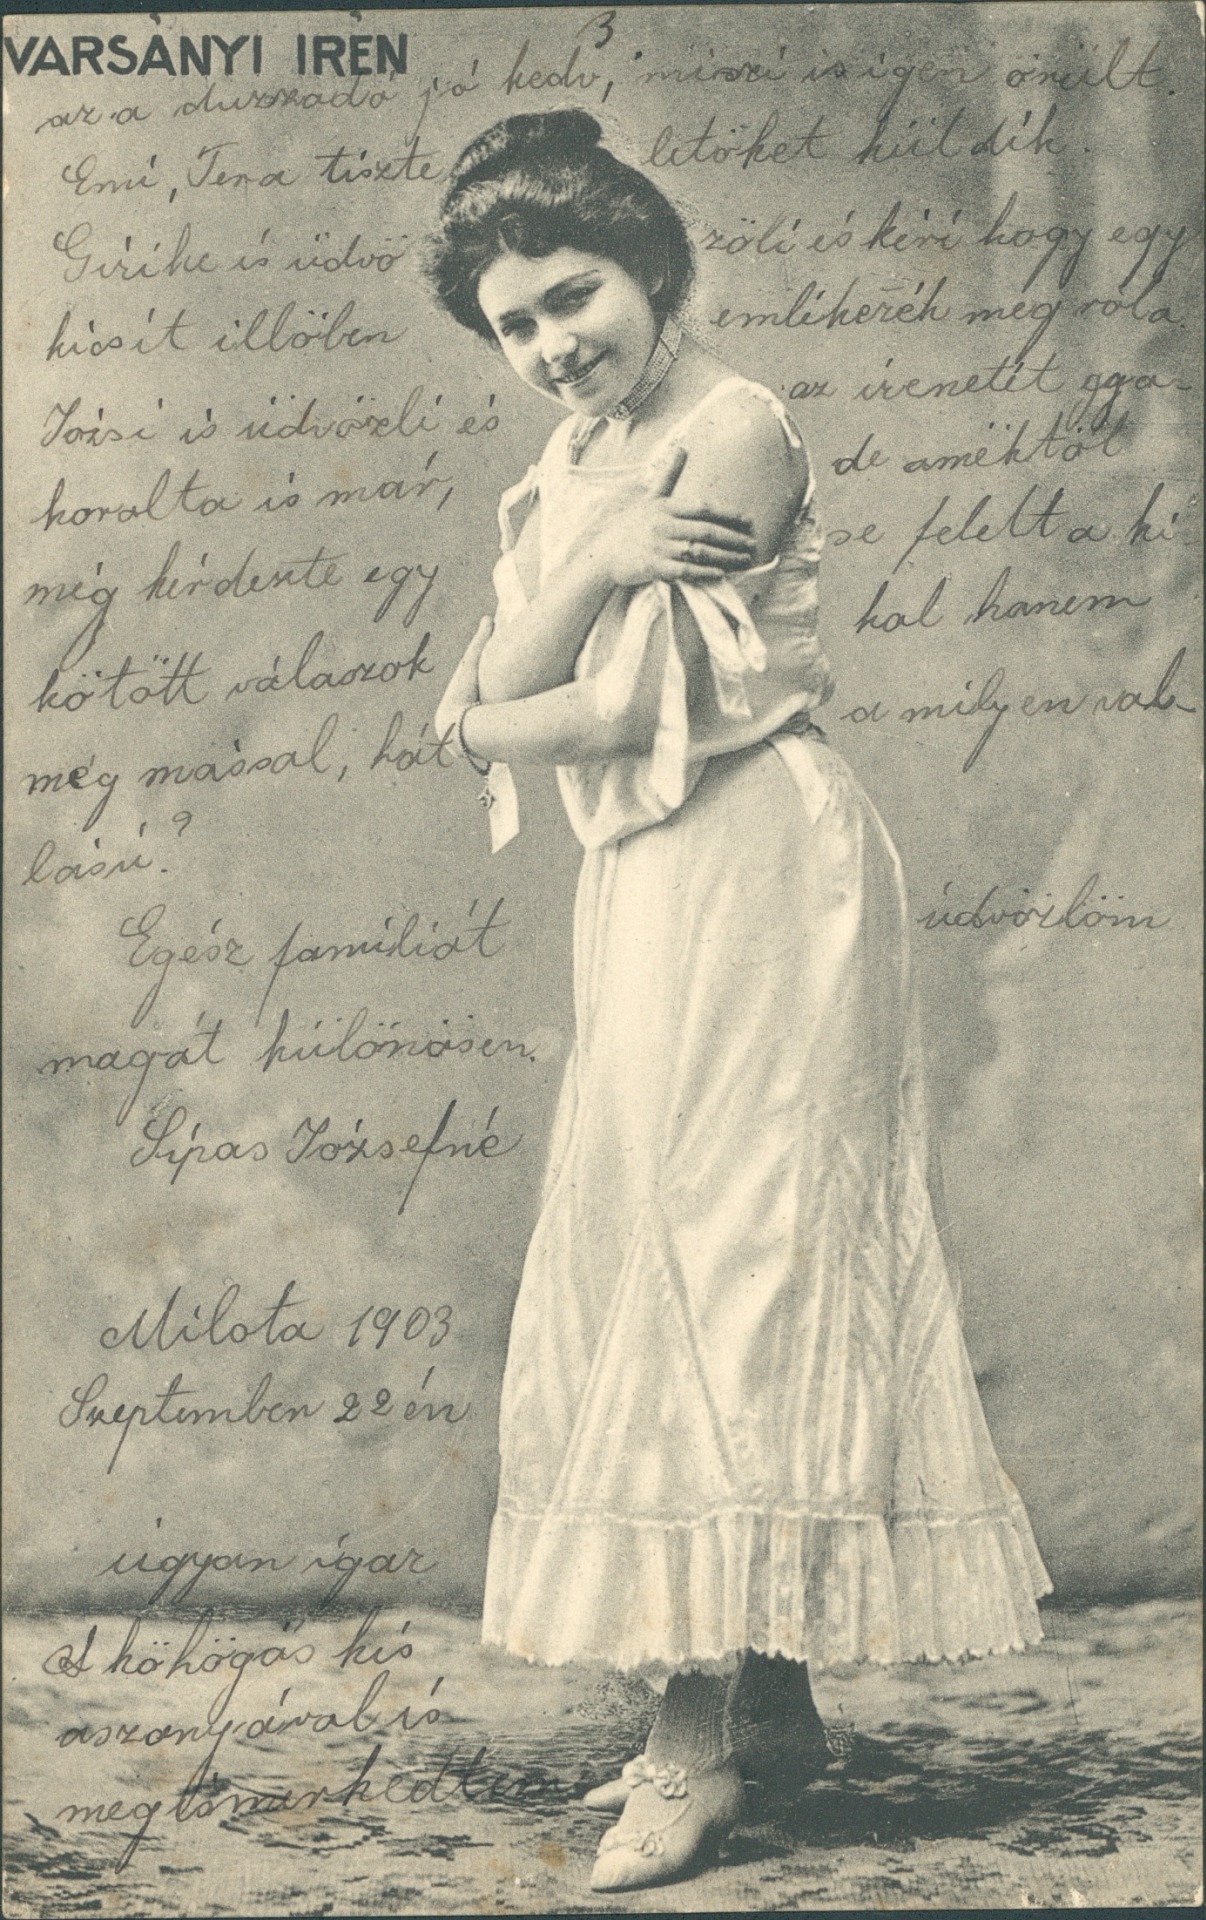 VARSÁNYI IRÉN
3
az a duzzadó jó kedv, miszi is igen örült.
Emi, Tera tiszte letöket küldik.
Girike is üdvö zöli és kéri hogy egy
kicsit illöben emlékezék meg rola.
Józsi is üdvözli és az irenetét
koralta is már, de améktöl
még kérdezte egy se felelt a
kötött válaszok kal hanem
még mással, hát a milyen val-
lású?
Egész familiát üdvözlöm
magát különösen.
Sipas Józsefné
Milota 1903
Szeptember 22 én
ugyan igaz
A köhögäs kis
aszonyával is
megismerkedtem